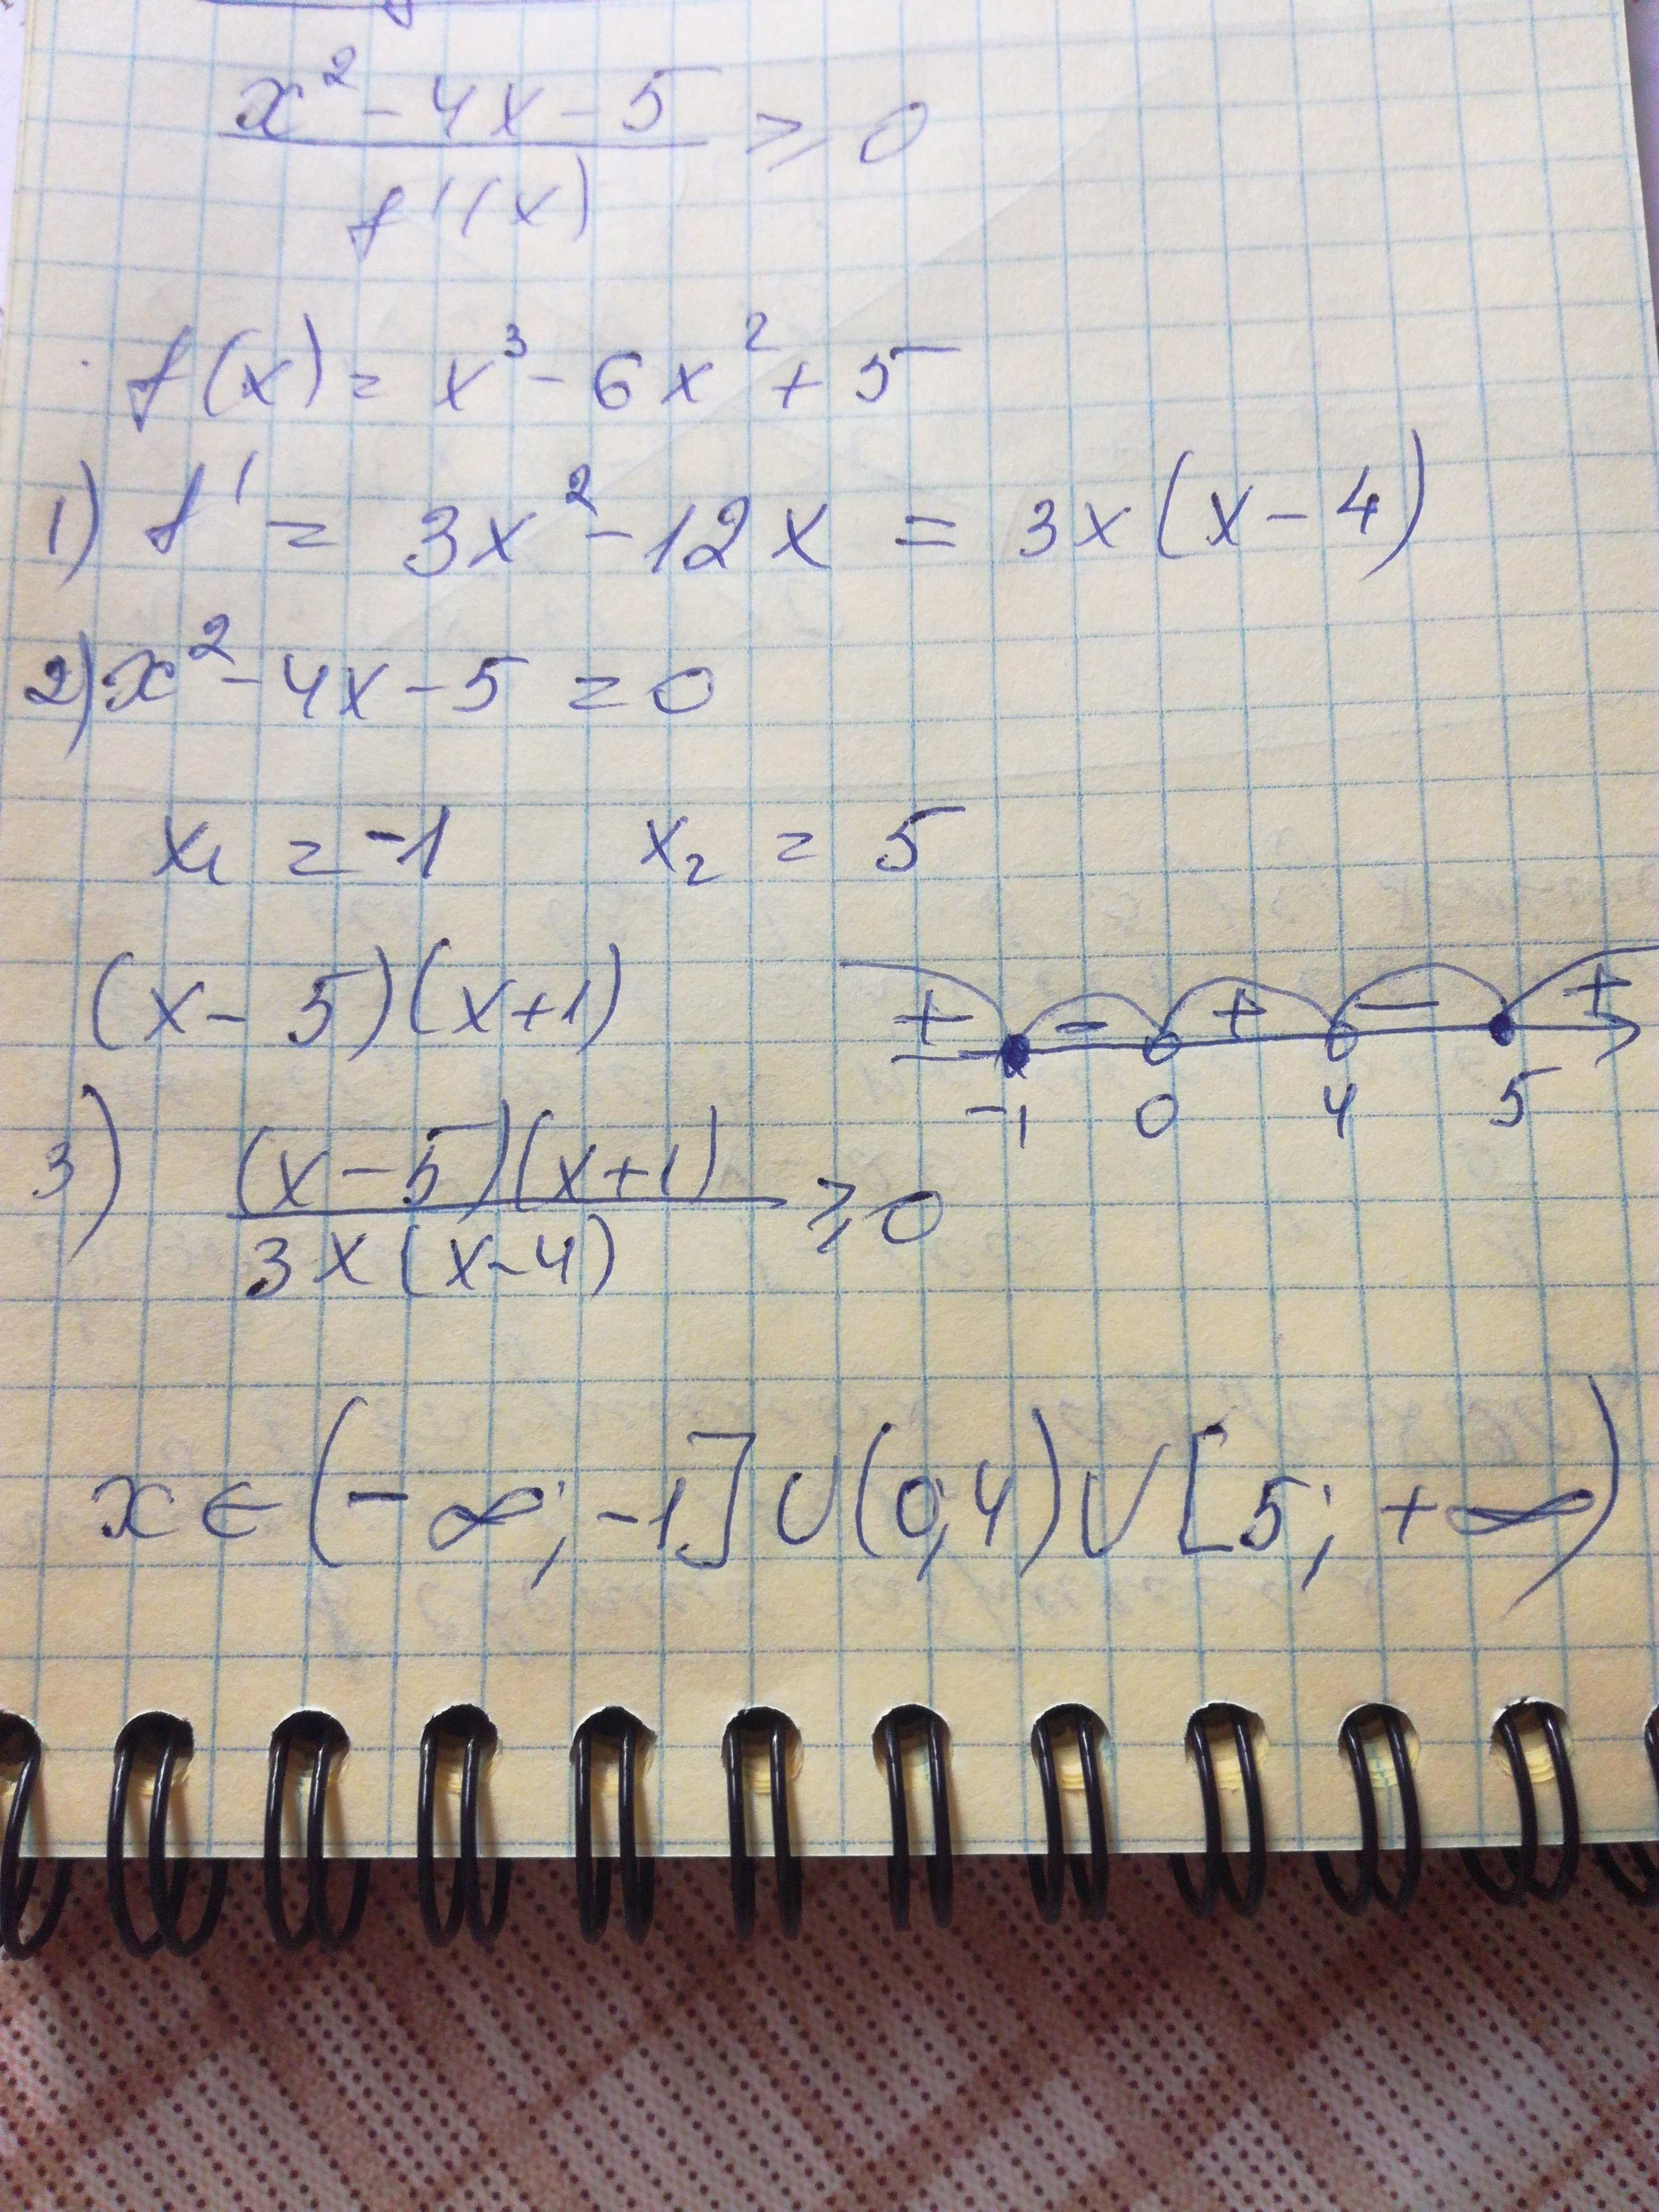 x² - 4x - 5 / f'(x) ≥ 0
f(x) = x³ - 6x² + 5
1) f' = 3x² - 12x = 3x(x - 4)
2) x² - 4x - 5 = 0
x₁ = -1 x₂ = 5
(x - 5)(x + 1)
+ - + - +
-1 0 4 5
3) (x - 5)(x + 1) / 3x(x - 4) ≥ 0
x ∈ (-∞; -1] ∪ (0; 4) ∪ [5; +∞)